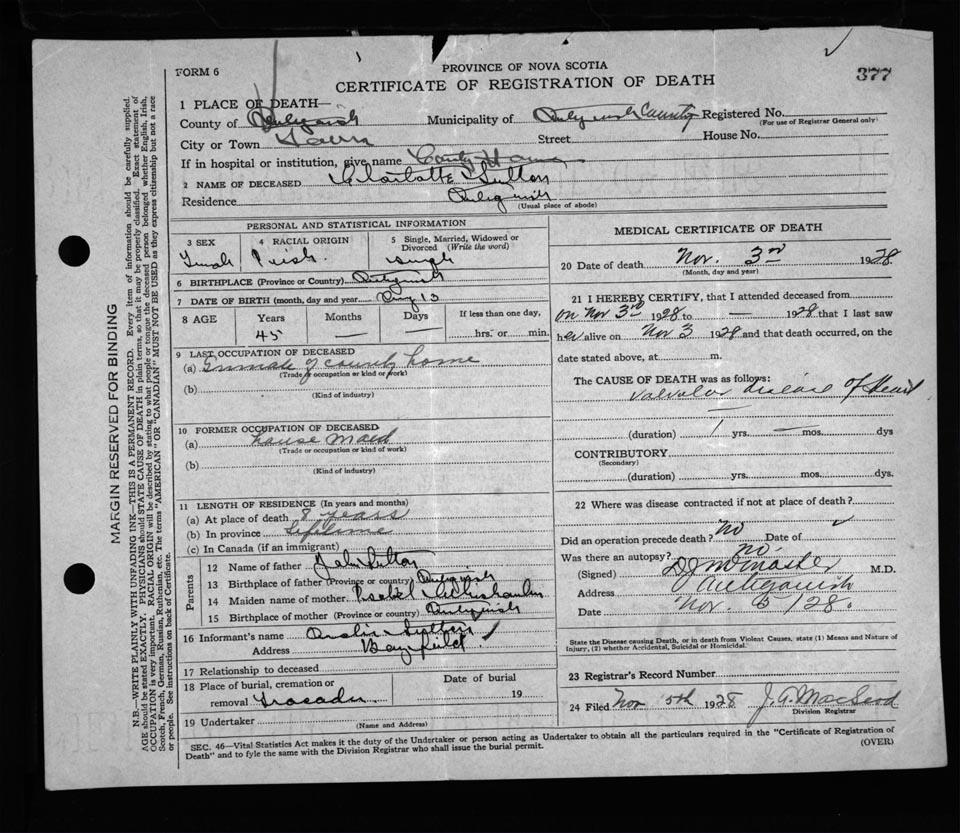 FORM 6
PROVINCE OF NOVA SCOTIA
CERTIFICATE OF REGISTRATION OF DEATH
377
1 PLACE OF DEATH—
County of Antigonish Municipality of Antigonish County Registered No.
(For use of Registrar General only)
City or Town Town Street House No.
If in hospital or institution, give name County Home
2 NAME OF DECEASED Charlotte Sutton
Residence Antigonish
(Usual place of abode)
PERSONAL AND STATISTICAL INFORMATION
3 SEX
4 RACIAL ORIGIN
5 Single, Married, Widowed or Divorced (Write the word)
Female Irish Single
6 BIRTHPLACE (Province or Country) Antigonish
7 DATE OF BIRTH (month, day and year) 13
8 AGE Years Months Days If less than one day,
45 — — hrs. or min.
9 LAST OCCUPATION OF DECEASED
(a) Inmate of county home
(Trade or occupation or kind of work)
(b)
(Kind of industry)
10 FORMER OCCUPATION OF DECEASED
(a) house maid
(Trade or occupation or kind of work)
(b)
(Kind of industry)
11 LENGTH OF RESIDENCE (In years and months)
(a) At place of death 8 years
(b) In province lifetime
(c) In Canada (if an immigrant)
Parents
12 Name of father John Sutton
13 Birthplace of father (Province or country) Antigonish
14 Maiden name of mother Isabel
15 Birthplace of mother (Province or country) Antigonish
16 Informant's name Sutton
Address Bayfield
17 Relationship to deceased
18 Place of burial, cremation or removal Tracadie
Date of burial
19
19 Undertaker
(Name and Address)
MEDICAL CERTIFICATE OF DEATH
20 Date of death Nov. 3rd 1928
(Month, day and year)
21 I HEREBY CERTIFY, that I attended deceased from
on Nov 3rd 1928 to — 1928 that I last saw
her alive on Nov 3 1928 and that death occurred, on the
date stated above, at m.
The CAUSE OF DEATH was as follows:
Valvular disease of Heart
—
(duration) 1 yrs. — mos. dys
CONTRIBUTORY
(Secondary)
(duration) yrs. mos. dys.
22 Where was disease contracted if not at place of death?
Did an operation precede death? no Date of
Was there an autopsy? no.
(Signed) M.D.
Address Antigonish
Date Nov. 5/28.
State the Disease causing Death, or in death from Violent Causes, state (1) Means and Nature of
Injury, (2) whether Accidental, Suicidal or Homicidal.
23 Registrar's Record Number
24 Filed Nov 5th 1928 J. A. MacLeod
Division Registrar
SEC. 46—Vital Statistics Act makes it the duty of the Undertaker or person acting as Undertaker to obtain all the particulars required in the "Certificate of Registration of
Death" and to fyle the same with the Division Registrar who shall issue the burial permit.
(OVER)
MARGIN RESERVED FOR BINDING
N.B.—WRITE PLAINLY WITH UNFADING INK—THIS IS A PERMANENT RECORD. Every item of information should be carefully supplied.
AGE should be stated EXACTLY. PHYSICIANS should STATE CAUSE OF DEATH in plain terms, so that it may be properly classified. Exact statement of
OCCUPATION is very important. RACIAL ORIGIN will be described by stating to what people or tongue the deceased person belonged whether English, Irish,
Scotch, French, German, Russian, Ruthenian, etc. The terms "AMERICAN" OR "CANADIAN" MUST NOT BE USED as they express citizenship but not a race
or people. See instructions on back of Certificate.